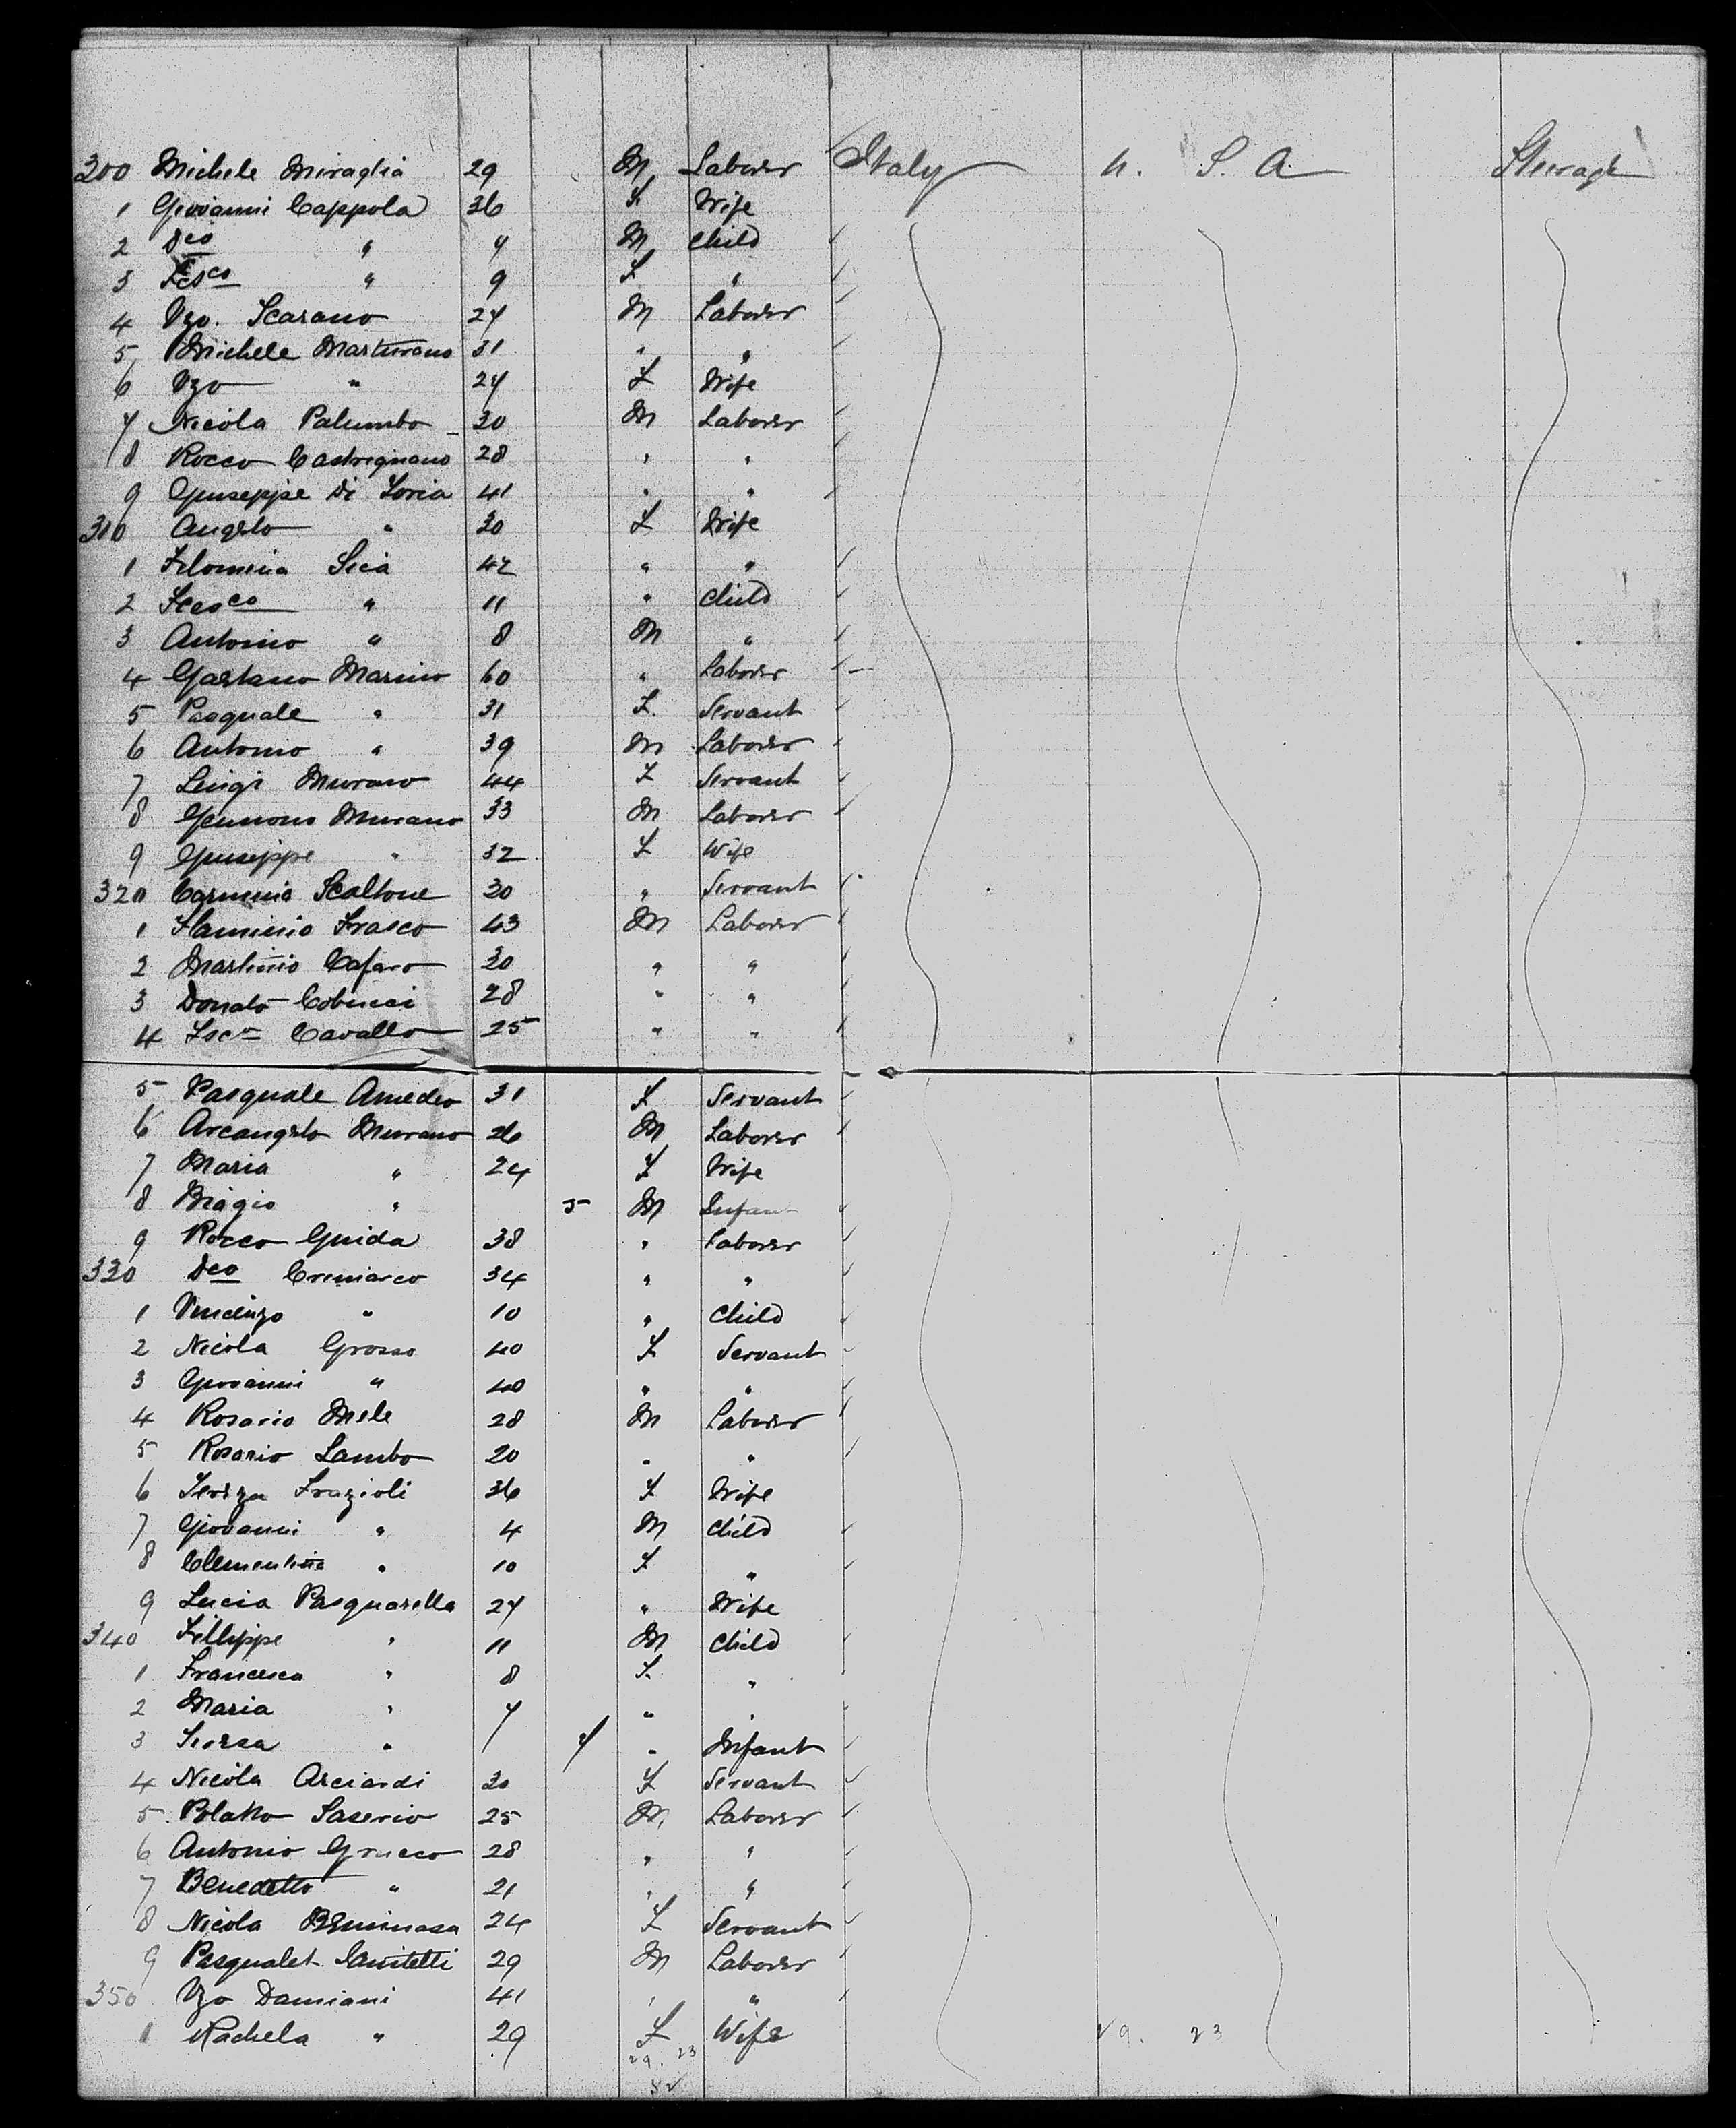 300 Michele Miraglia 29 M Laborer Italy U. S. A Steerage
1 Giovanni Cappola 36 F Wife
2 Dco " 7 M Child
3 Fcsco " 9 F "
4 Vzo. Scarano 27 M Laborer
5 Michele Marturano 31 " "
6 Vzo " 27 F Wife
7 Nicola Palumbo 30 M Laborer
8 Rocco Castrignano 28 " "
9 Giuseppe Di Loria 41 " "
310 Angelo " 30 F Wife
1 Filomina Sica 42 " "
2 Fcesco " 11 " Child
3 Antonio " 8 M "
4 Gaetano Marino 60 " Laborer
5 Pasquale " 31 F. Servant
6 Antonio " 39 M Laborer
7 Luigi Murano 44 F Servant
8 Gennono Murano 33 M Laborer
9 Giuseppe " 32 F Wife
320 Carminia Scaltone 30 " Servant
1 Flaminio Frasco 43 M Laborer
2 Martinio Cafaro 30 " "
3 Donato Cobucci 28 " "
4 Fsco Cavallo 25 " "
5 Pasquale Amedeo 31 F Servant
6 Arcangelo Murano 26 M Laborer
7 Maria " 24 F Wife
8 Biagio " 5 M Infant
9 Rocco Guida 38 " Laborer
330 Dco Cremarco 34 " "
1 Vincenzo " 10 " Child
2 Nicola Grosso 40 F Servant
3 Giovanni " 40 " "
4 Rosario Mele 28 M Laborer
5 Rosario Lambo 20 " "
6 Tereza Frazioli 36 F Wife
7 Giovanni " 4 M Child
8 Clementina " 10 F "
9 Lucia Pasquarella 27 " Wife
340 Fillippe " 11 M Child
1 Francesca " 8 F. "
2 Maria " 7 " "
3 Teresa " / 7 " Infant
4 Nicola Arciardi 30 F Servant
5. Blatto Saserio 25 M. Laborer
6 Antonio Grueco 28 " "
7 Benedetto " 21 " "
8 Nicola 24 F Servant
9 Pasqualet 29 M Laborer
350 Vzo Damiani 41 " "
1 Rachela " 29 F Wife
29. 23 29. 23
52